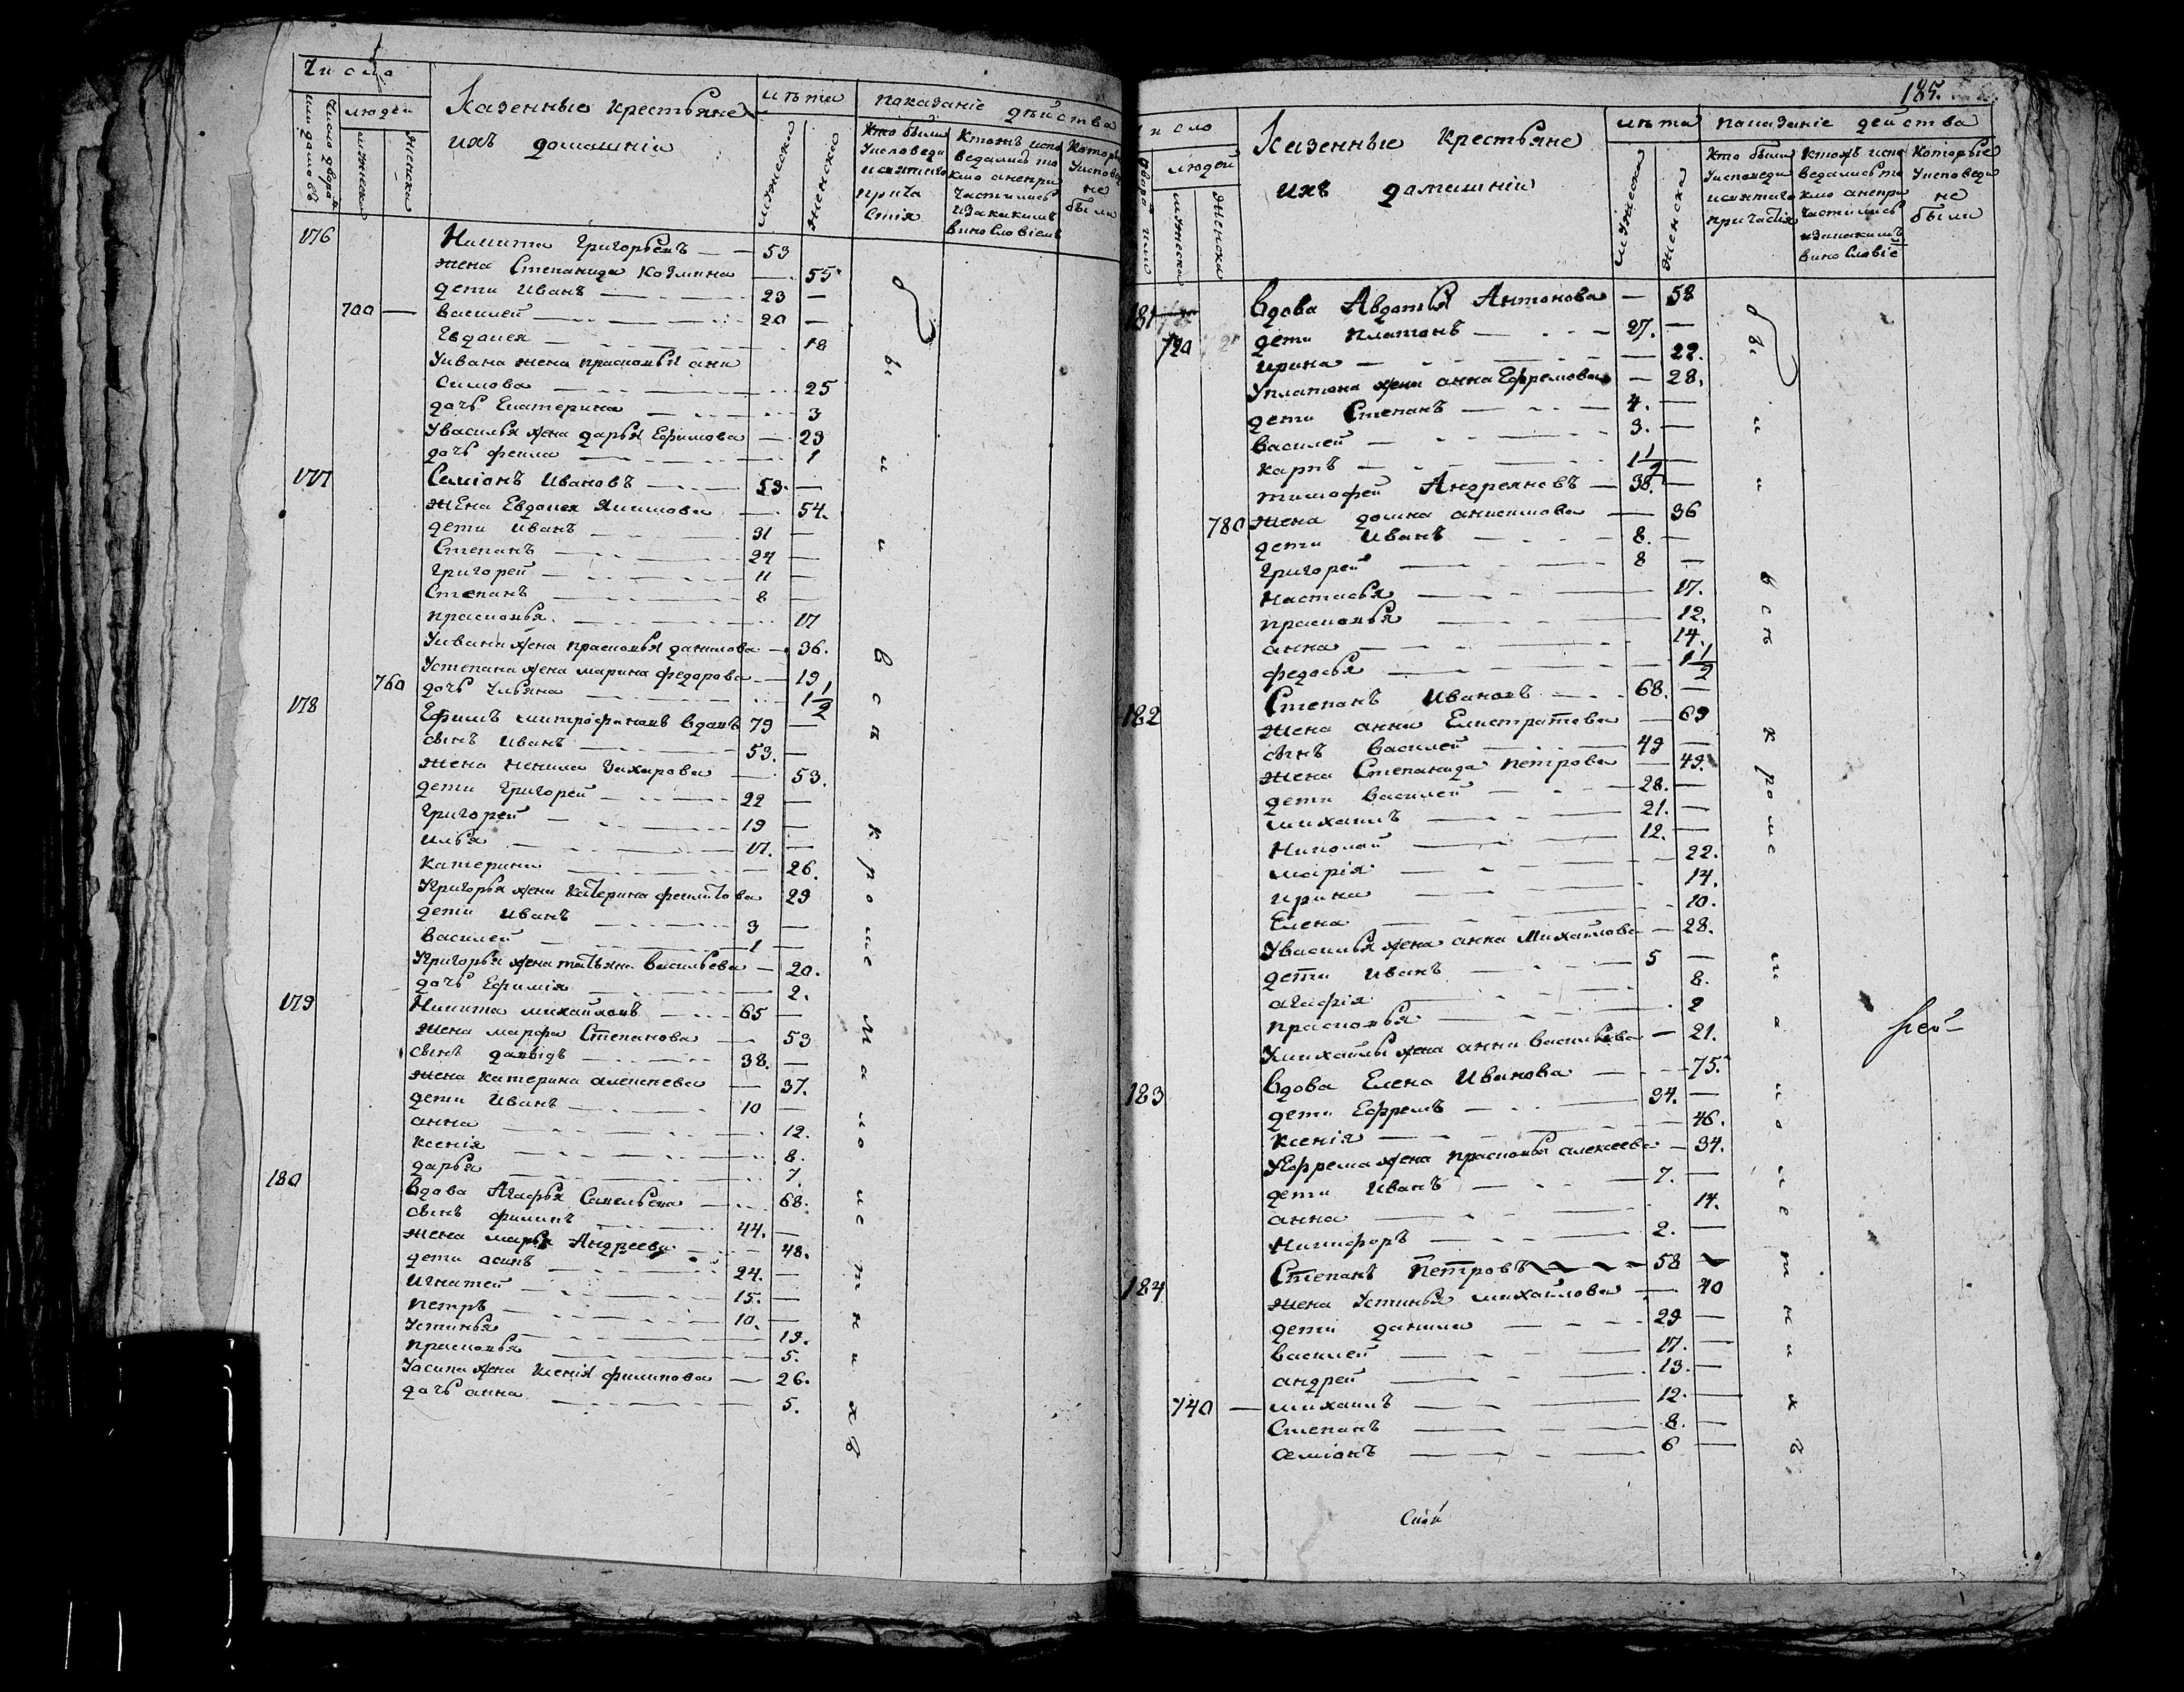 Число
число дворовъ или домовъ
людей
мужеска
женска
Казенные крестьяне
ихъ домашніи
лѣта
мужеска
женска
показаніе дѣйства
Кто были
Уисповеди
исвятыго
прича
стія
Ктожъ испо
ведались то
кмо анепри
частились
изакакимъ
винословіемъ
Которые
Уисповеди
не
были
176 Никита Григорьевъ — 53
жена Степанида Козмина — 55
дети Иванъ — 23 —
700 — василей — 20 —
Евдокея — 18
Уивана жена прасковья ани
симова — 25
дочь Екатерина — 3
Увасилья жена дарья Ефимова — 23
дочь фекла — 1
177 Семіонъ Ивановъ — 53. —
жена Евдокея Якимова — 54.
дети Иванъ — 31 —
Степанъ — 24 —
Григорей — 11 —
Степанъ — 8 —
прасковья — 17
Уивана жена прасковья данилова — 36.
Устепана жена марина федорова — 19
760 дочь Ульяна — 1 1/2
178 Ефимъ митрофановъ вдовъ 79 —
сынъ Иванъ — 53. —
жена Ненила Захарова — 53.
дети Григорей — 22 —
Григорей — 19 —
илья — 17. —
катерина — 26.
Угригорья жена катерина филипова 29
дети Иванъ — 3 —
василей — 1 —
Угригорья жена татьяна васильева — 20.
дочь Ефимія — 2.
179 Никита михайловъ — 65 —
жена марфа Степанова — 53
сынъ давыдъ — 38. —
жена катерина алексеева — 37.
дети Иванъ — 10 —
анна — 12.
ксенія — 8.
дарья — 7.
180 Вдова Агафья Савельева — 68.
сынъ филипъ — 44. —
жена марья Андреева — 48.
дети осипъ — 24. —
Игнатей — 15. —
петръ — 10. —
Устинья — 19.
прасковья — 5.
Уосипа жена ксенія филипова — 26.
дочь анна — 5.
были и и всп кроме малолетнихъ
185.
число
дворовъ или
людей
мужеска
женска
Казенные крестьяне
ихъ домашніи
лѣта
мужеска
женска
показаніе действа
Кто были
Уисповеди
исвятыго
причастія
Ктожъ испо
ведались то
кмо анепри
частились
изакакимъ
винословіе
Которые
Уисповеди
не
были
181 Вдова Авдотья Антонова — 58
720 дети платонъ — 27. —
ирина — 22.
Уплатона жена анна Ефремова — 28.
дети Степанъ — 4. —
василей — 3. —
карпъ — 1 1/2 —
тимофей Андреяновъ — 38. —
780 жена домна анисимова — 36
дети Иванъ — 8. —
Григорей — 8 —
настасья — 17.
прасковья — 12.
анна — 14.
федосья — 1 1/2
182 Степанъ Ивановъ — 68. —
жена анна Елистратова — 69
сынъ василей — 49 —
жена Степанида петрова — 49.
дети василей — 28. —
михаилъ — 21. —
Николай — 12. —
марія — 22.
ирина — 14.
Елена — 10.
Увасилья жена анна Михайлова — 28.
дети Иванъ — 5 —
агафія — 8.
прасковья — 2
Умихайлы жена анна васильева — 21.
183 Вдова Елена Иванова — 75.
дети Ефремъ — 34. —
ксенія — 46.
Уефрема жена прасковья алексеева — 34.
дети Иванъ — 7. —
анна — 14.
Никифоръ — 2. —
184 Степанъ Петровъ — 58 —
жена Устинья михайлова — 40
дети данила — 29 —
василей — 17. —
андрей — 13. —
740 — михаилъ — 12. —
Степанъ — 8. —
семіонъ — 6 —
были и и всѣ кроме малолетнихъ
рей